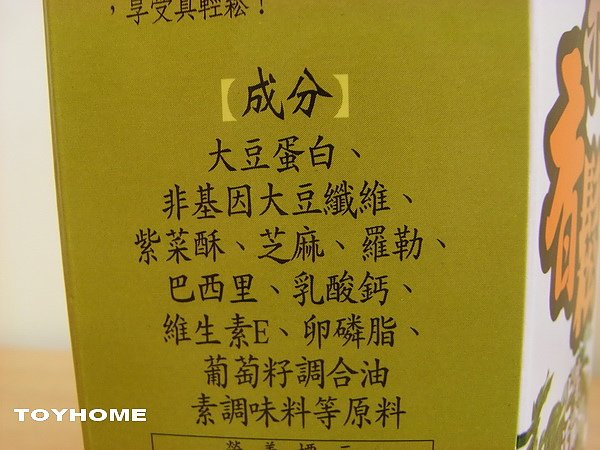 ，享受真輕鬆！
【成分】
大豆蛋白、
非基因大豆纖維、
紫菜酥、芝麻、羅勒、
巴西里、乳酸鈣、
維生素E、卵磷脂、
葡萄籽調合油
素調味料等原料
TOYHOME